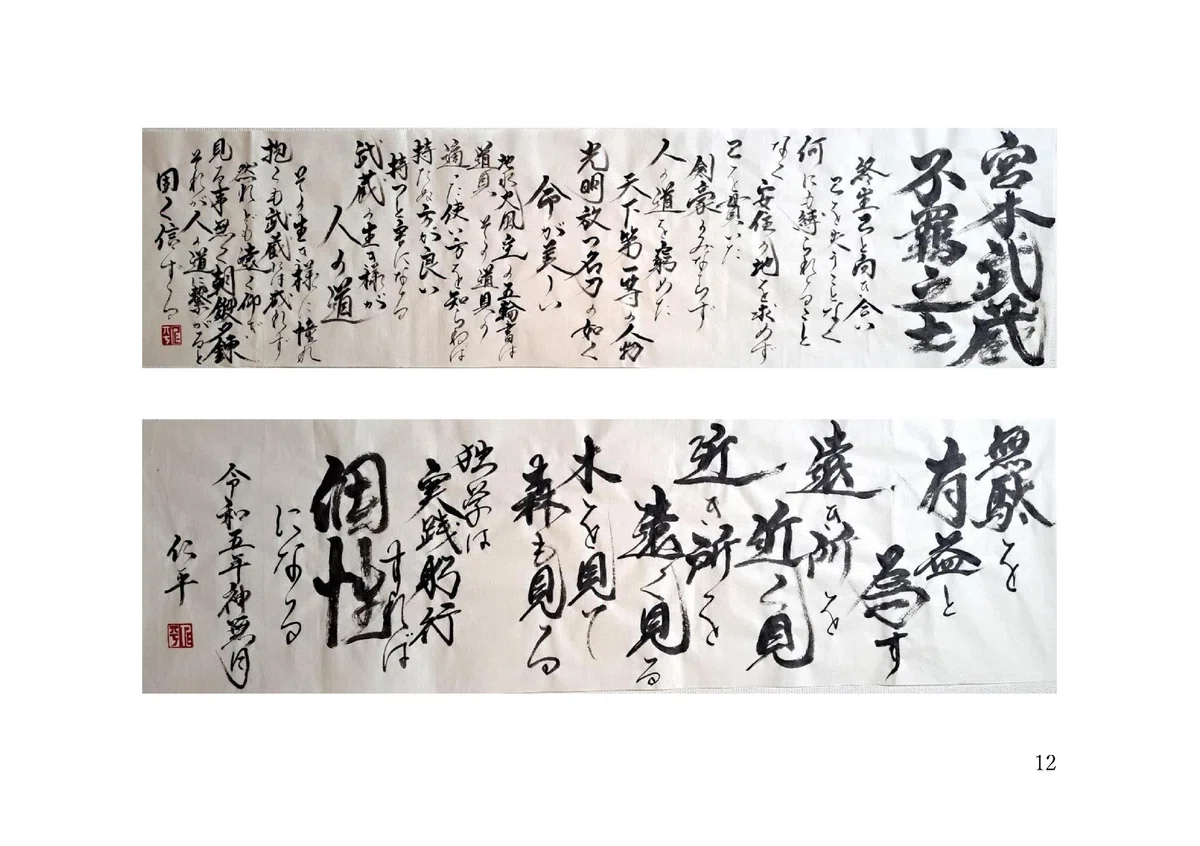 宮本武蔵
不羈之士
終生己と向き合い
己を失うことなく
何にも縛られること
なく安住の地を求めず
己を貫いた
剣豪のみならず
人の道を窮めた
天下第一等の人物
光明放つ名刀の如く
命が美しい
地水火風空の五輪書は
道具、その道具の
適った使い方を知らねば
持たぬ方が良い
持つと重になる
武蔵の生き様が
人の道
その生き様に憧れ
抱くも武蔵には成れず
然れども遠く仰ぎ
見る事無く朝鍛夕錬
それが人の道に繋がると
固く信ずる
無駄を
有益と
為す
遠き所を
近く見
近き所を
遠く見る
木を見て
森も見る
独学は
実践躬行
すれば
個性
になる
令和五年神無月
仁平
12